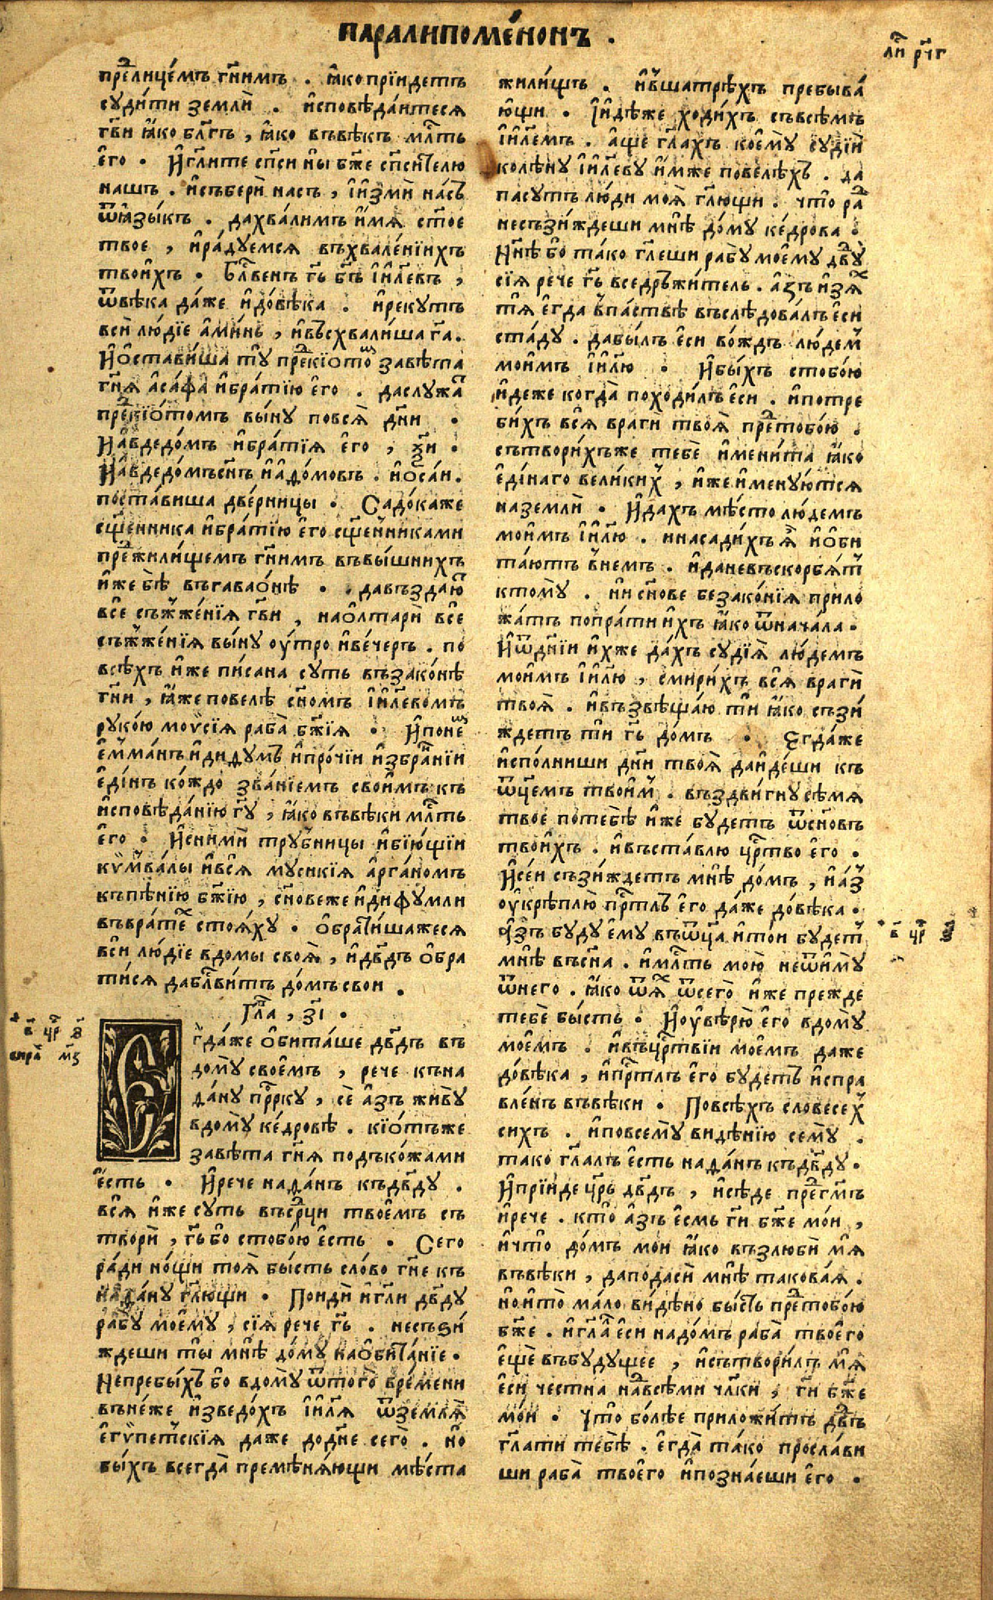 паралипоме́нонъ .
ли҃ рч҃г
пре҇лице́мъ гн҃имъ . ꙗ҆́ко прїидетъ
суди́ти землѝ . и҆сповѣ́даитеся
гв҃и ꙗ҆́ко бл҃гъ , ꙗ҆́ко въвѣ́къ мл҇ть
є҆го̀ . И҆ гл҃ите сп҃си ны̀ бж҃е сп҃си́телю
нашъ . и҆съберѝ насъ , и҆ и҆змѝ на́съ
ѿꙗ҆зы́къ . дахва́лимъ и҆́мя ст҃ое
твое , и҆ра́дуемся въхвале́нїихъ
твои́хъ . Бл҇ве́нъ гь҃ бъ҃ і҆и҃левъ ,
ѿвѣ́ка да́же и҆дове́ка . и҆рекутъ
всѝ лю́дїе а҆ми́нь , и҆въсхвали́ша га҃ .
И҆ѻ҆ста́виша тꙋ̀ пре҇кїо́томъ завѣ́та
гн҃я а҆са́фа и҆бра́тїю є҆го̀ . даслужа҇
пре҇кїо́томъ вы́ну повсѧ̀ дн҃и .
И҆ а҆вдедо́мъ и҆бра́тїя є҆го̀ , ѯ҃и .
И҆ а҆вдедо́мъ сн҃ъ и҆ а҆до́мовъ . и҆ ѻ҆са́и .
поста́виша две́рницы . Садо́каже
сщ҃е́нника и҆бра́тїю є҆го̀ сщ҃е́нниками
пре҇жили́щемъ гн҃имъ въвы́шнихъ
и҆́же бѣ̀ въгаваѻ́нѣ . давъздаю҇
всѐ съжже́нїя гв҃и , наѻлтарѝ всѐ
съжже́нїя вы́ну оу҆́тро и҆ве́черъ . по
всѣ́хъ и҆́же пи́сана суть възако́нѣ
гн҃и , ꙗ҆́же повелѣ̀ сн҃омъ і҆и҃левомъ
руко́ю моѵсі́я раба̀ бж҃ія . И҆ по не҇
є҆мма́нъ и҆ диду́мъ и҆про́чїи и҆збра́нїи
є҆ди́нъ ко́ждо зва́нїемъ свои́мъ къ
и҆сповѣ́данїю гу҃ , ꙗ҆́ко въвѣ́ки мл҇ть
є҆го̀ . И҆сни́ми тру́бницы и҆бїю́щїи
кѵмва́лы и҆всѧ̀ мусикі́я а҆рга́номъ
къпѣ́нїю бж҃ію , сн҃овеже и҆дифу́мли
въврате́хъ стоя́ху . ѻ҆брати́шажеся
всѝ лю́дїе вдо́мы своѧ̀ , и҆дв҃дъ ѻ҆бра
ти́ся дабл҇ви́тъ до́мъ свои .
Гл҇а , з҃і .
в҃ цр҇ з҃
сира҇ м҃з
Є҆гда́же ѻ҆бита́ше дв҃дъ въ
дому̀ свое́мъ , рече къна
да́ну прⷪ҇рку , сѐ а҆́зъ живу̀
вдому̀ ке́дровѣ . кїо́тъже
завѣ́та гн҃я подъко́жами
є҆́сть . И҆рече нада́нъ къдв҃ду .
всѧ̀ и҆же суть въсрⷣци твое́мъ съ
творѝ , гь҃ бо стобо́ю є҆́сть . Сего
ра́ди но́щи тоѧ̀ бы́сть сло́во гн҃е къ
нада́ну гл҃ющи . Поидѝ и҆ гл҃и дв҃ду
рабу̀ моє҆му , сїя̀ рече гь҃ . несъзи́
ждеши ты̀ мнѣ̀ до́му наѻбита́нїе .
Непребы́хъ бо̀ вдому̀ ѿтого̀ вре́мени
въне́же и҆зведо́хъ і҆и҃ля ѿземлѧ̀
є҆гѵпе́тскїя даже додн҃е сего̀ . но̀
бы́хъ всегда̀ премѣня́ющи мѣ́ста
жили́щъ . и҆вшатрѣ́хъ пребыва́
ю҆щи . И҆ и҆дѣ́же ходи́хъ съвсѣ́мъ
і҆и҃лемъ . а҆ще гл҃ахъ кое́му судїѝ
колѣ́ну і҆и҃леву и҆́мже повелѣ́хъ . да
пасутъ лю́ди моѧ̀ гл҃ющи . что ра҇
несъзи́ждеши мнѣ̀ до́му ке́дрова .
Нн҃ѣ бо̀ та́ко гл҃еши рабу̀ моє҆му дв҃ду
сїя рече гь҃ вседръжи́тель . а҆зъ и҆зя҇
тя̀ є҆гда̀ впаствѣ̀ въслѣ́довалъ є҆си
ста́ду . дабы́лъ є҆си во́ждь лю́дем
мои́мъ і҆и҃лю . И҆бы́хъ стобо́ю
и҆деже когда̀ походи́лъ є҆си . и҆потре
би́хъ всѧ̀ враги твоѧ̀ пре҇тобо́ю .
сътвори́хъже тебѐ и҆мени́та ꙗ҆́ко
є҆ди́наго вели́ких , и҆же и҆мену́ются
наземлѝ . И҆да́хъ мѣ́сто лю́демъ
мои́мъ і҆и҃лю . и҆насади́хъ ѧ҆̀ и҆ѻ҆би
та́ютъ вне́мъ . и҆даневъскорбя́т
ктому̀ . ни сн҃ове безако́нїя прило
жа́тъ попра́ти и҆хъ ꙗ҆́ко ѿнача́ла .
И҆ѿдн҃їи и҆хже да́хъ судїѧ̀ лю́демъ
мои́мъ і҆и҃лю , смири́хъ всѧ̀ врагѝ
твоѧ̀ . и҆възвѣща́ю тѝ ꙗ҆́ко съзи́
ждетъ тѝ гь҃ до́мъ . Є҆гда́же
и҆сполниши дн҃и твоѧ̀ даи҆де́ши къ
ѿц҃емъ твои́м . въздви́гну сѣ́мя
твоѐ потебѣ̀ и҆жѐ будетъ ѿсн҃овъ
твои́хъ . и҆въста́влю цр҇тво є҆го̀ .
И҆ се́и съзи́ждетъ мнѣ̀ до́мъ , и҆ а҆з
оу҆крѣплю̀ прⷭ҇тлъ є҆го̀ да́же до́вѣка .
А҆́зъ буду є҆му̀ въѿц҃а и҆ то́и будет
мнѣ̀ въсн҃а . и҆мл҇ть мою̀ неѿиму̀
ѿнего . ꙗ҆́ко ѿя҇ ѿсего̀ и҆же прежде
тебѐ бы́сть . И҆ оу҆вѣ́рю є҆го̀ вдому̀
мое́мъ . и҆въцр҇твїи мое́мъ даже
до́вѣка , и҆прⷭ҇тлъ є҆го̀ будетъ и҆спра
вле́нъ въвѣ́ки . Повсѣ́хъ словесех
си́хъ . и҆повсему̀ видѣ́нїю сему̀ .
та́ко гл҃алъ є҆сть нада́нъ къдв҃ду .
И҆прїи́де цр҃ь дв҃дъ , и҆сѣ́де пре҇гм҃ъ
и҆рече . кто̀ а҆зъ є҆смь ги҃ бж҃е мо́и ,
и҆что̀ до́мъ мо́и ꙗ҆́ко възлюбѝ мя̀
въвѣ́ки , даподасѝ мнѣ̀ такова́я .
но и҆то̀ ма́ло ви́дѣно бы́сть пре҇тобо́ю
бж҃е . и҆ гл҃а є҆си надо́мъ раба̀ твоего̀
є҆щѐ въбудущее , и҆сътвори́лъ мѧ̀
є҆си честна̀ на́двсѣми чл҃ки , ги҃ бж҃е
мо́и . Что̀ бо́лѣе приложи́тъ дв҃дъ
гл҃ати тебѣ̀ . є҆гда̀ та́ко просла́ви
ши раба̀ твоего̀ и҆позна́еши є҆го̀ .
в҃ цр҇ з҃